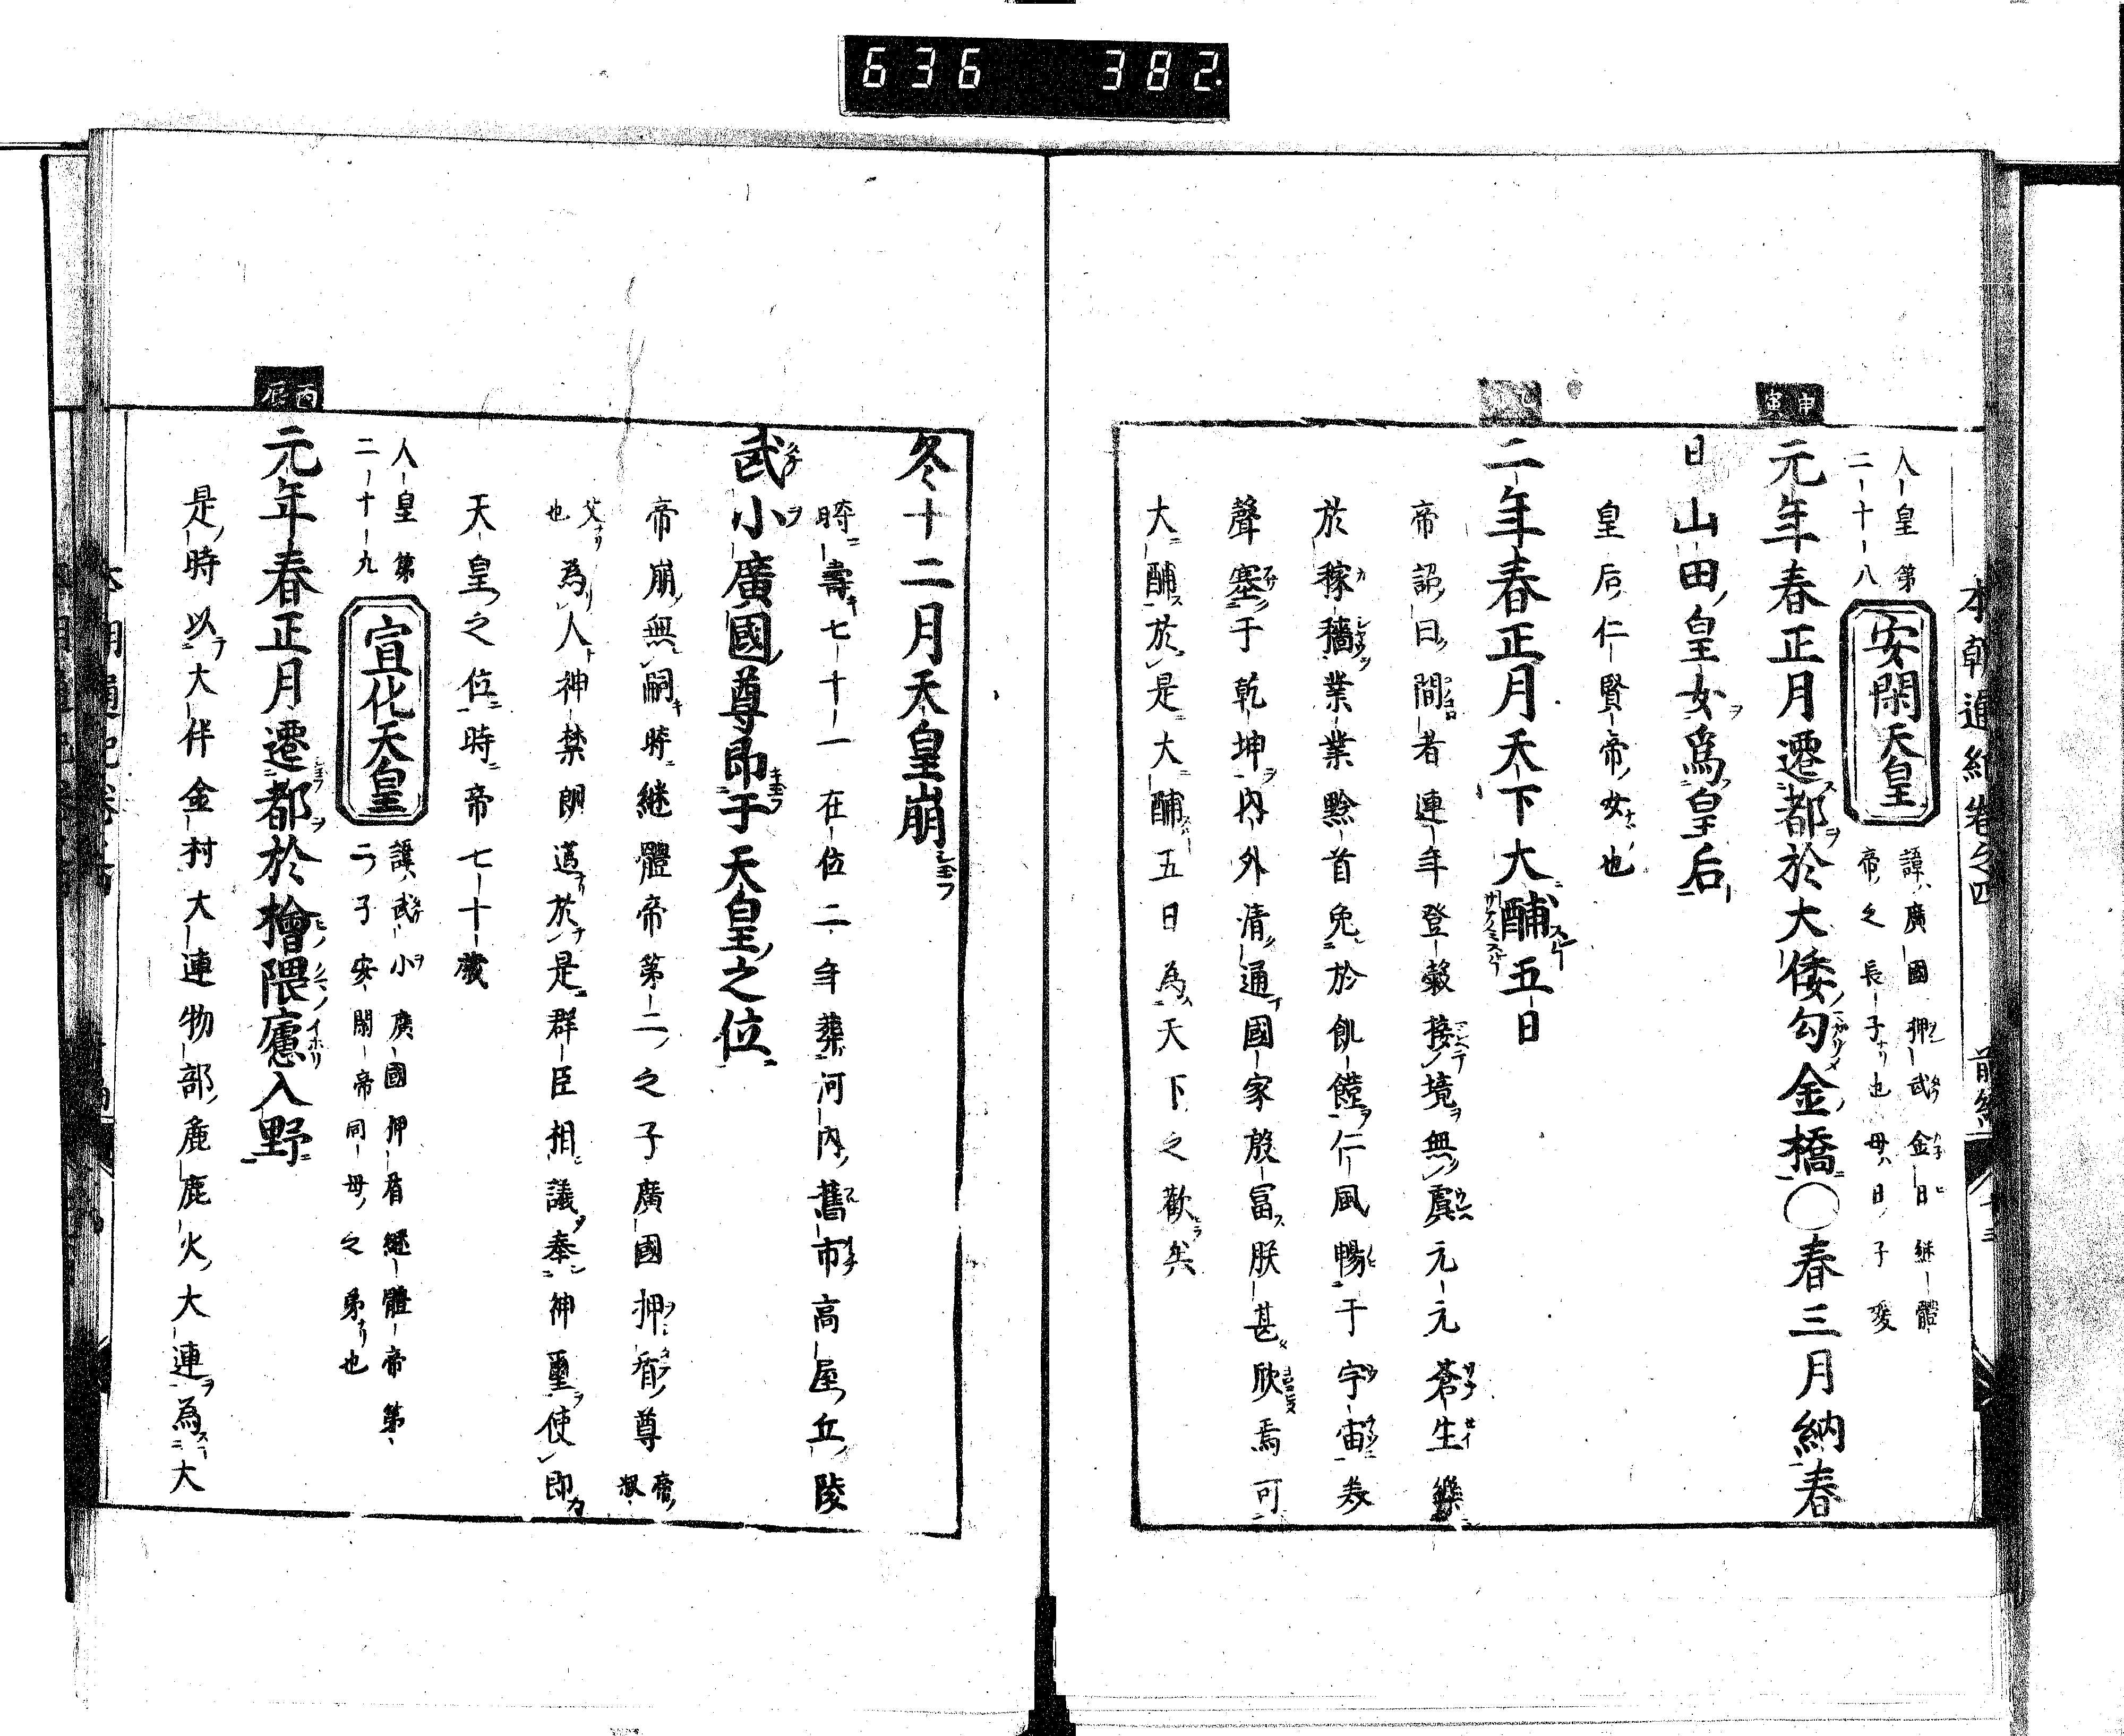 636 382
本朝通紀卷之四 前編
人皇第
二十八
安閑天皇
諱廣國押武金日継體
帝之長子也母日子𡝤
甲寅
元年春正月遷都於大倭勾金橋〇春三月納春
日山田皇女爲皇后
皇后仁賢帝女也
二年春正月天下大酺五日
帝詔曰間者連年登穀接境無虞元元蒼生樂
於稼穡業業黔首免於飢饉仁風暢于宇宙美
聲塞于乾坤内外清通國家殷富朕甚欣焉可
大酺於是大酺五日為天下之歡矣
冬十二月天皇崩
時壽七十一在位二年葬河内舊市高屋丘陵
武小廣國尊即于天皇之位
帝崩無嗣時継體帝第二之子廣國押盾尊帝淑
父也為人神禁朗邁於是群臣相議奉神璽使即
天皇之位時帝七十歳
人皇第
二十九
宣化天皇
諱武小廣國押盾継體帝第
二子安閑帝同母之弟也
丙辰
元年春正月遷都於檜隈廬入野
是時以大伴金村大連物部麁鹿火大連為大